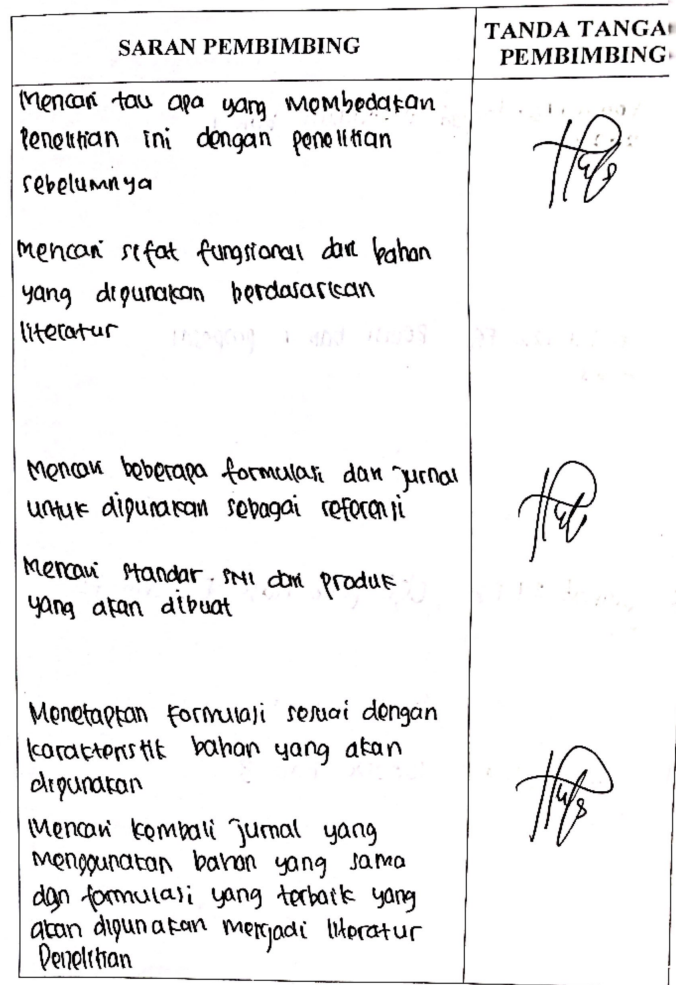 SARAN PEMBIMBING
TANDA TANGA
PEMBIMBING
Mencari tau apa yang Membedakan
Penelitian ini dengan penelitian
sebelumnya
mencari sifat fungsional dari bahan
yang digunakan berdasarkan
literatur
Mencari beberapa formulasi dan jurnal
untuk digunakan sebagai referensi
Mencari standar SNI dari produk
yang akan dibuat
Menetapkan formulasi sesuai dengan
karakteristik bahan yang akan
digunakan
Mencari kembali jurnal yang
Menggunakan bahan yang sama
dan formulasi yang terbaik yang
akan digunakan menjadi literatur
Penelitian